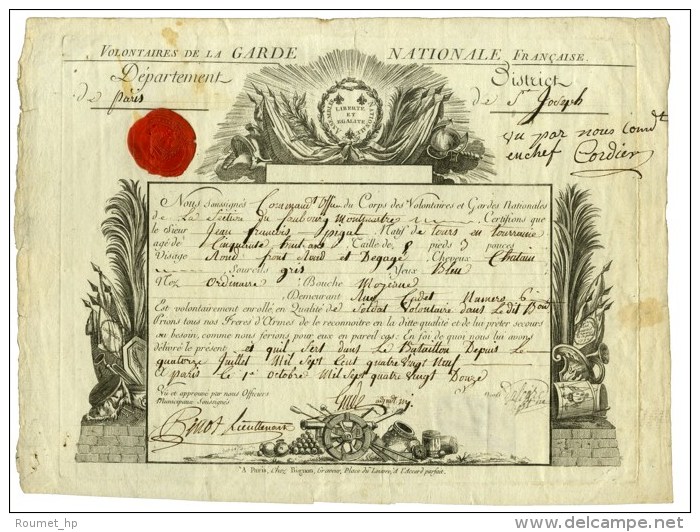 VOLONTAIRES DE LA GARDE NATIONALE FRANÇAISE.
Département District
de paris de St Joseph
ASSEMBLÉE NATIONALE
LIBERTÉ
ET
EGALITÉ
vu par nous Comdt
en chef Cordier
Nous Soussignés Commandt Offier du Corps des Volontaires et Gardes Nationales
de La Section du faubourg Montmartre Certifions que
le Sieur Jean francois pigal Natif de tours en tourrainne
agé de Cinquante huit ans Taille de 5 pieds 3 pouces
Visage Rond front Rond et Degagé Cheveux Chatain
Sourcils gris Yeux Bleu
Nez Ordinaire Bouche Moyenne
Demeurant Rue Cadet Numero 6
Est volontairement enrollé en Qualité de Soldat Volontaire dans Ledit
Prions tous nos Freres d'Armes de le reconnoitre en la ditte qualité et de lui preter secours
au besoin, comme nous ferions pour eux en pareil cas. En foi de quoi nous lui avons
délivré le présent et quil Sert dans Le Bataillon Depuis Le
quatorze Juillet Mil Sept Cent quatre Vingt Neuf
A paris Le 1er Octobre Mil Sept quatre Vingt Douze
Vu et approuvé par nous Officiers
Municipaux Soussignés
Lieutenant
A Paris, Chez Bignon, Graveur, Place du Louvre, A l'Accord parfait.
Roumet_hp
delcampe.net